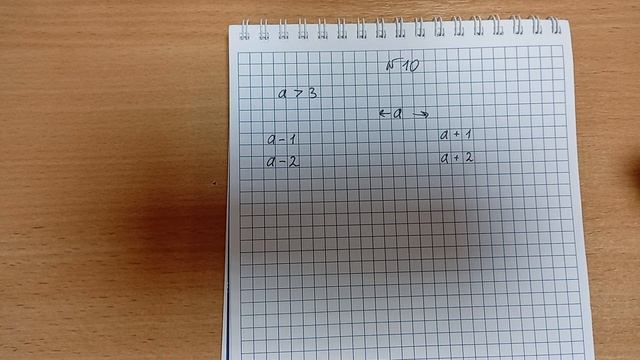 №10
a > 3
← a →
a - 1 a + 1
a - 2 a + 2